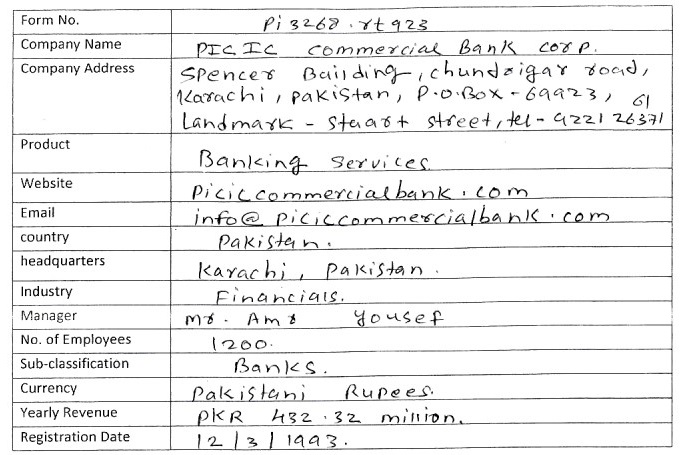 Form No. Pi 3268.rt923
Company Name PICIC commercial Bank corp.
Company Address Spencer Building, chundrigar road,
Karachi, pakistan, P.O.Box - 69923,
Landmark - Stuart street, tel - 9221 26371 61
Product Banking services
Website Piciccommercialbank.com
Email info@piciccommercialbank.com
country Pakistan.
headquarters Karachi, pakistan.
Industry Financials.
Manager Mr. Amr Yousef
No. of Employees 1200.
Sub-classification Banks.
Currency Pakistani Rupees.
Yearly Revenue PKR 432.32 million.
Registration Date 12/3/1993.